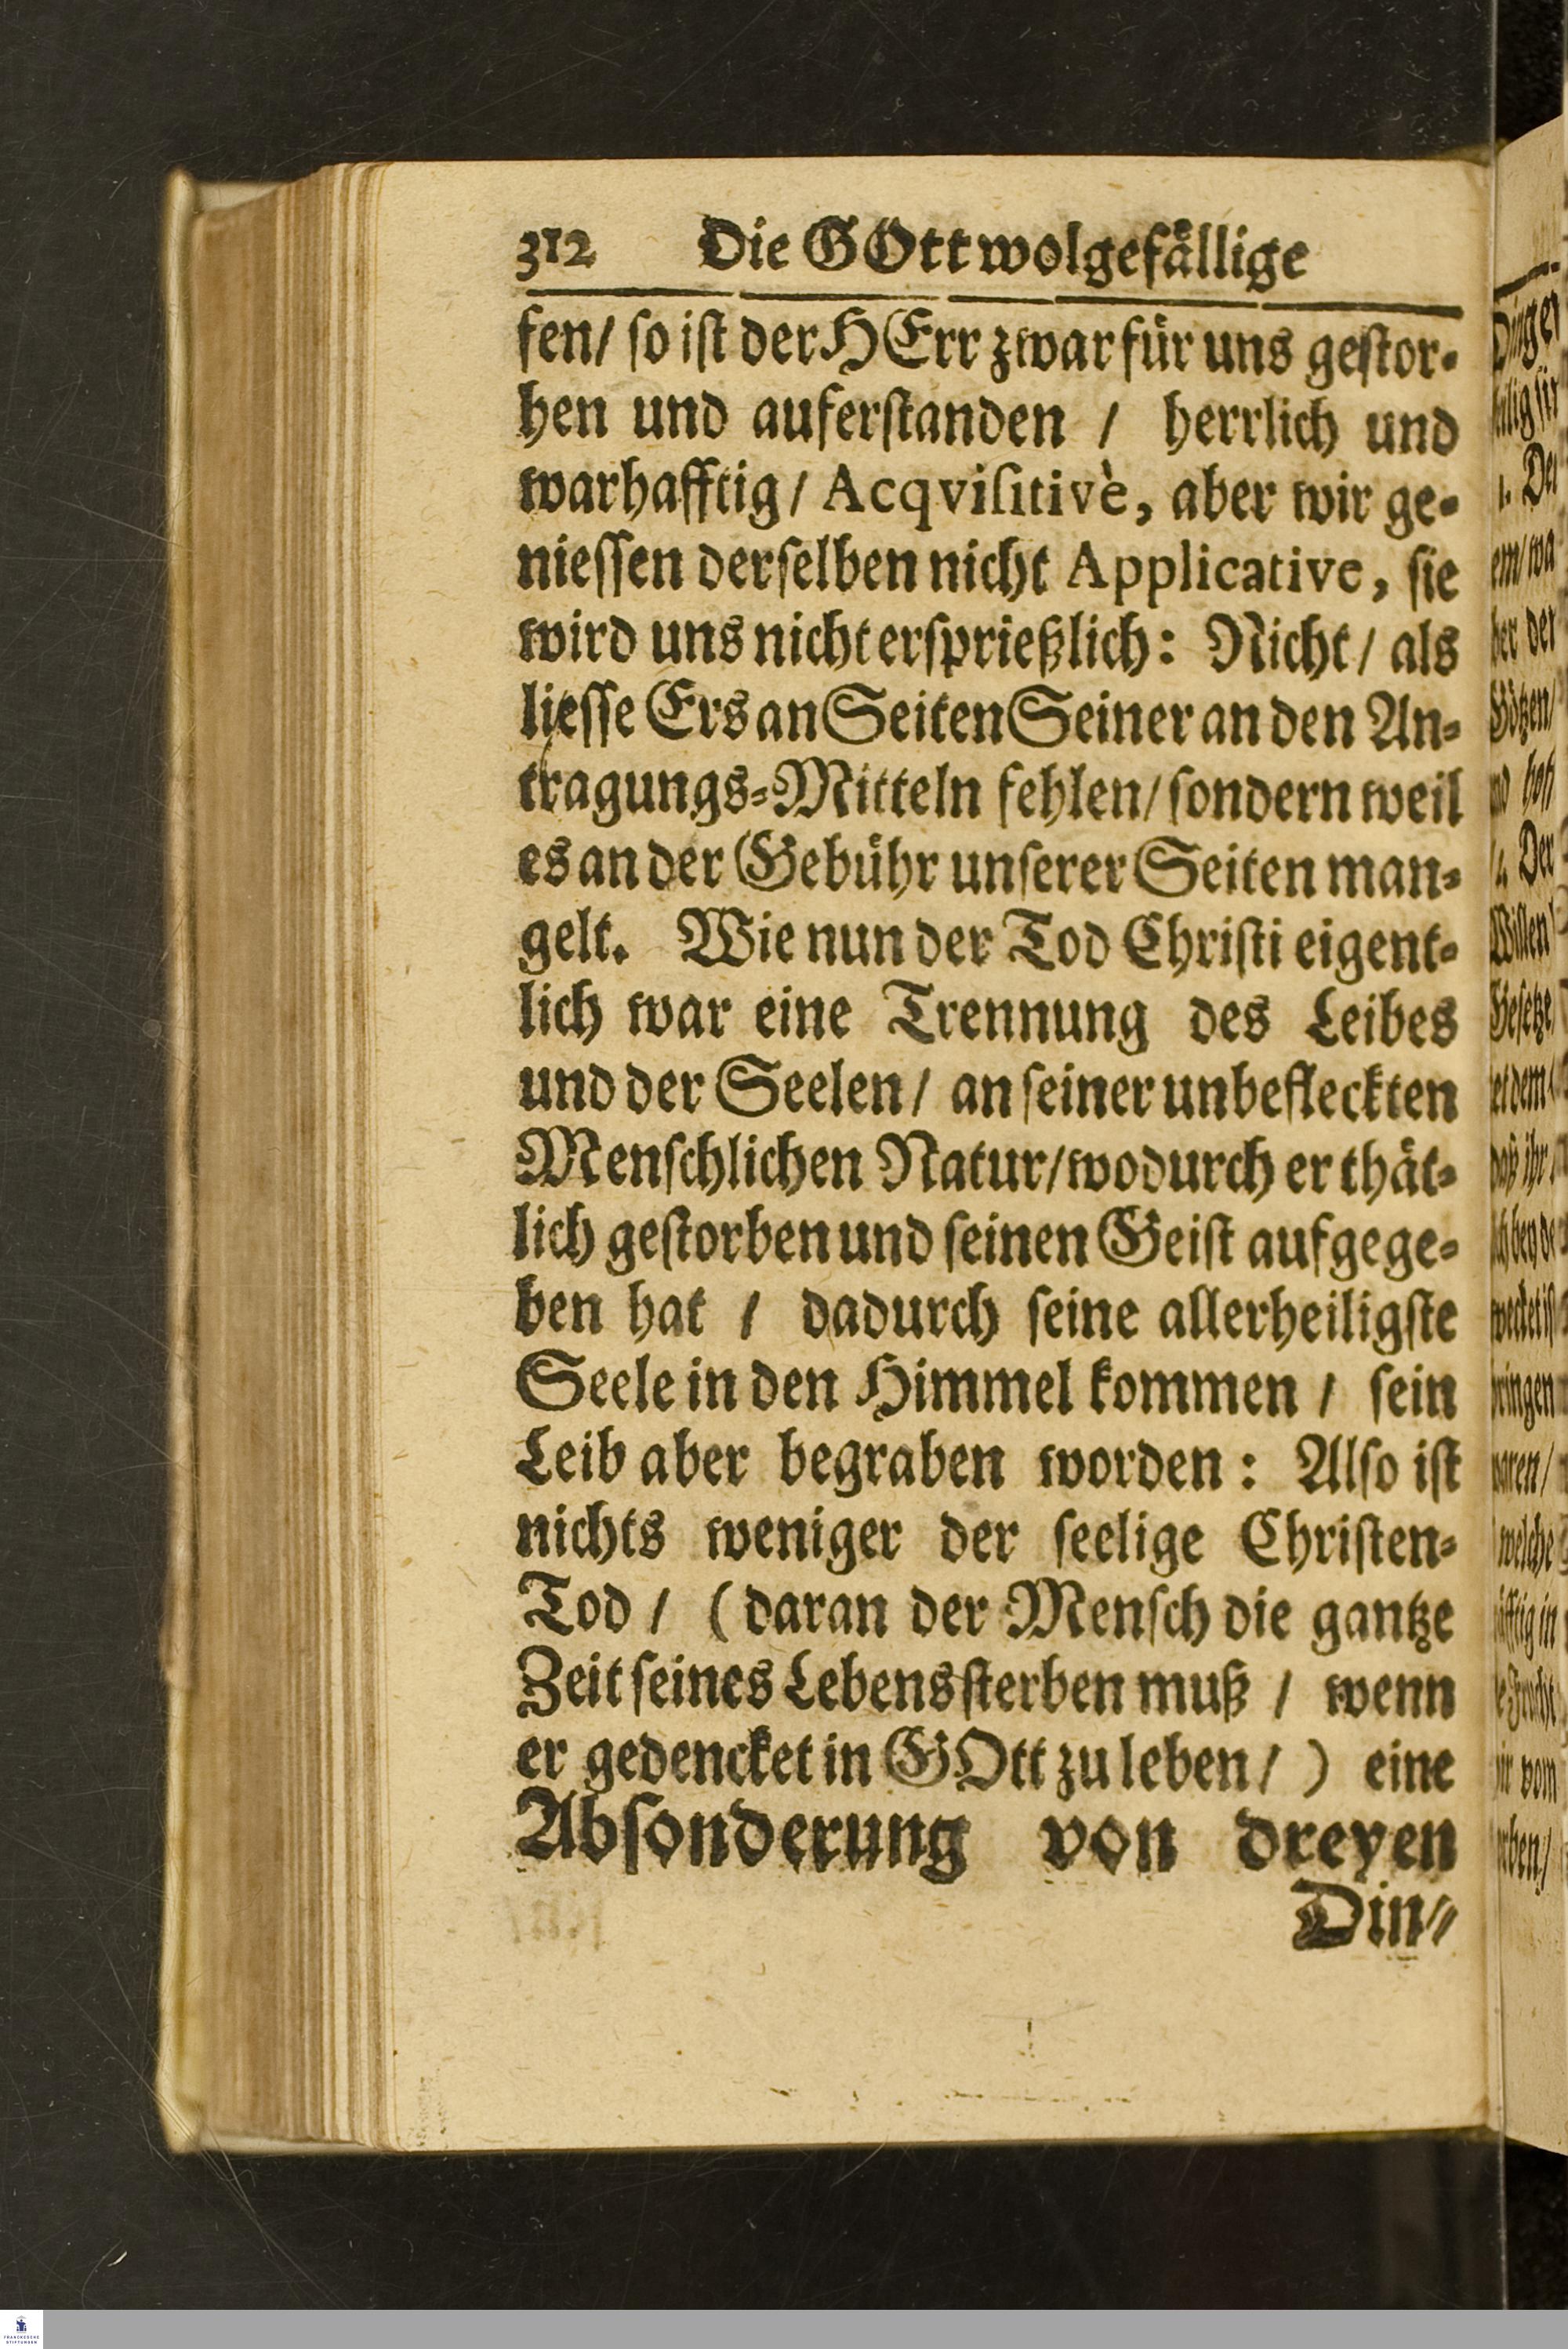 312 Die GOtt wolgefällige
fen/ ſo iſt der HErr zwar für uns geſtor-
hen und auferſtanden / herrlich und
warhafftig / Acqviſitivè, aber wir ge-
nieſſen derſelben nicht Applicative, ſie
wird uns nicht erſprießlich: Nicht / als
lieſſe Ers an Seiten Seiner an den An-
tragungs-Mitteln fehlen/ ſondern weil
es an der Gebühr unſerer Seiten man-
gelt. Wie nun der Tod Chriſti eigent-
lich war eine Trennung des Leibes
und der Seelen / an ſeiner unbefleckten
Menſchlichen Natur/ wodurch er thät-
lich geſtorben und ſeinen Geiſt aufgege-
ben hat / dadurch ſeine allerheiligſte
Seele in den Himmel kommen / ſein
Leib aber begraben worden: Alſo iſt
nichts weniger der ſeelige Chriſten-
Tod / (daran der Menſch die gantze
Zeit ſeines Lebens ſterben muß / wenn
er gedencket in GOtt zu leben / ) eine
Abſonderung von dreyen
Din-
FRANCKESCHE
STIFTUNGEN